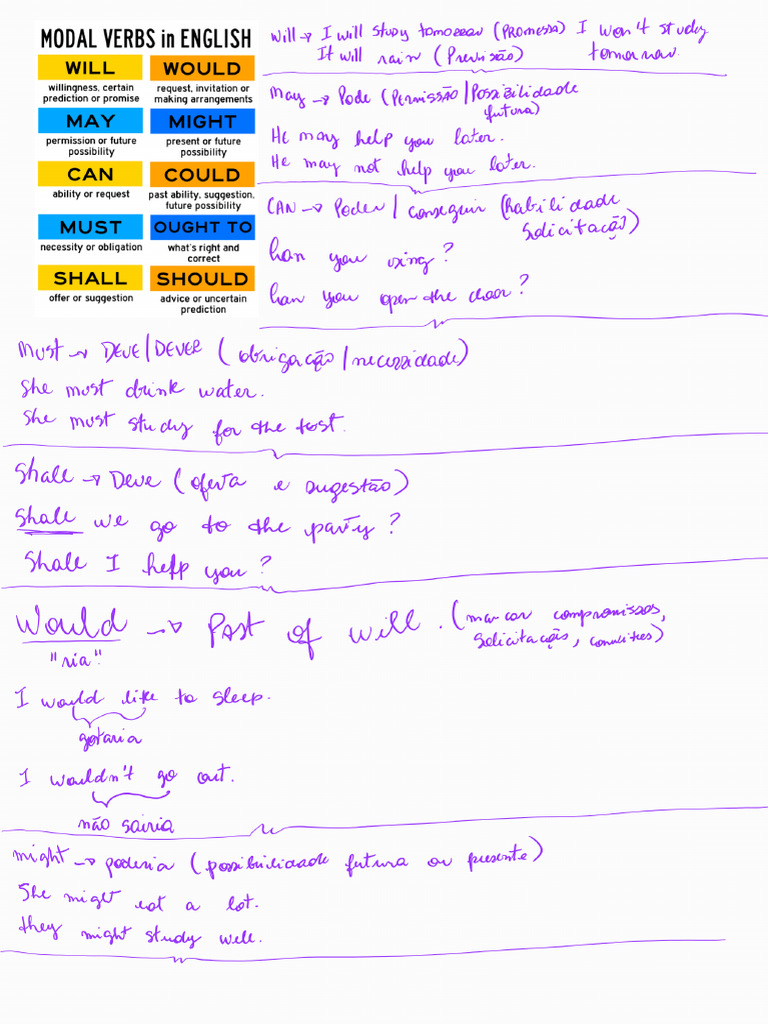 MODAL VERBS in ENGLISH
WILL
willingness, certain
prediction or promise
WOULD
request, invitation or
making arrangements
MAY
permission or future
possibility
MIGHT
present or future
possibility
CAN
ability or request
COULD
past ability, suggestion,
future possibility
MUST
necessity or obligation
OUGHT TO
what's right and
correct
SHALL
offer or suggestion
SHOULD
advice or uncertain
prediction
Will → I will study tomorrow (PROMESSA) I won't study
It will rain (Previsão) tomorrow.
May → Pode (Permissão / Possibilidade
futura)
He may help you later.
He may not help you later.
CAN → Poder / conseguir (habilidade
solicitação)
Can you sing?
Can you open the door?
Must → DEVE/DEVER (obrigação/necessidade)
She must drink water.
She must study for the test.
Shall → Deve (oferta e sugestão)
Shall we go to the party?
Shall I help you?
Would → Past of will. (marcar compromissos,
solicitação, convites)
"ria".
I would like to sleep.
gostaria
I wouldn't go out.
não sairia
might → poderia (possibilidade futura ou presente)
She might eat a lot.
They might study well.